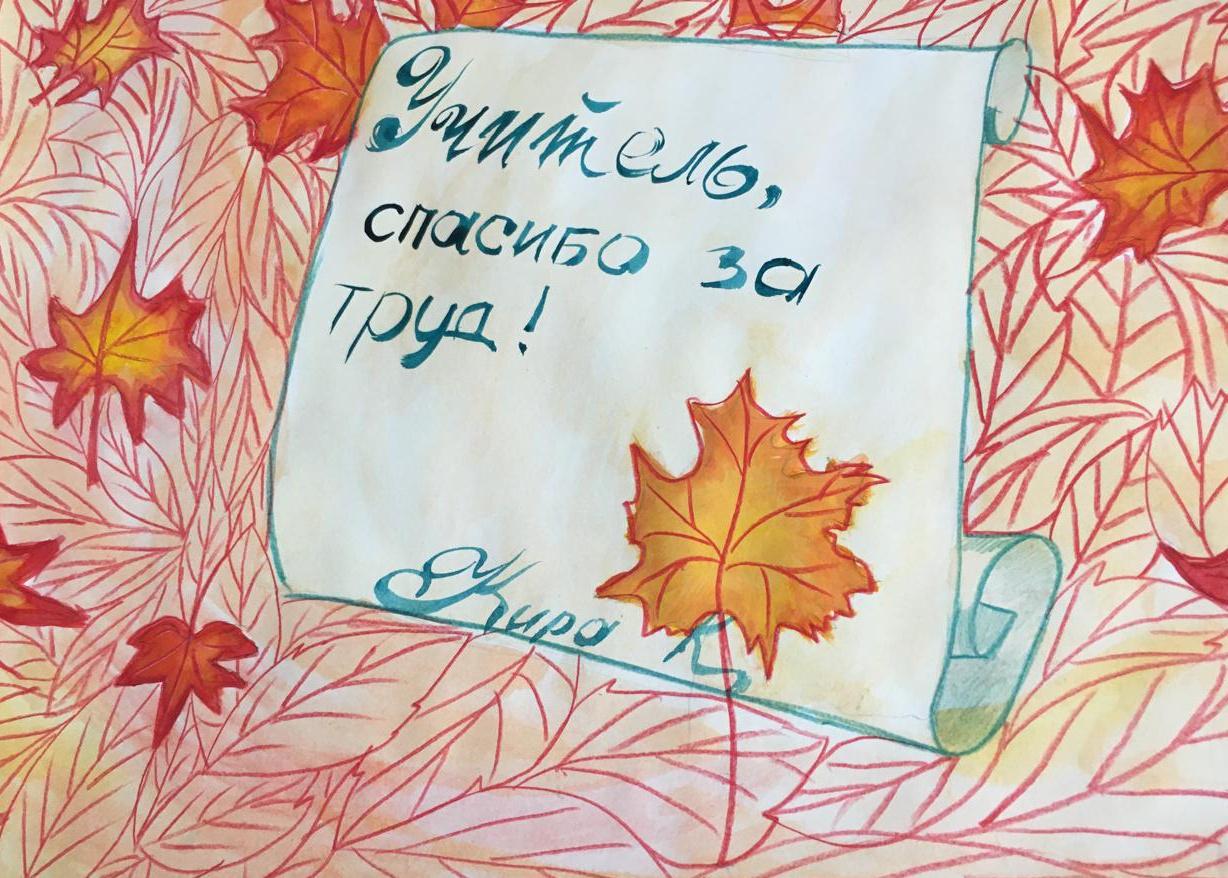 Учитель,
спасибо за
труд!
Кира